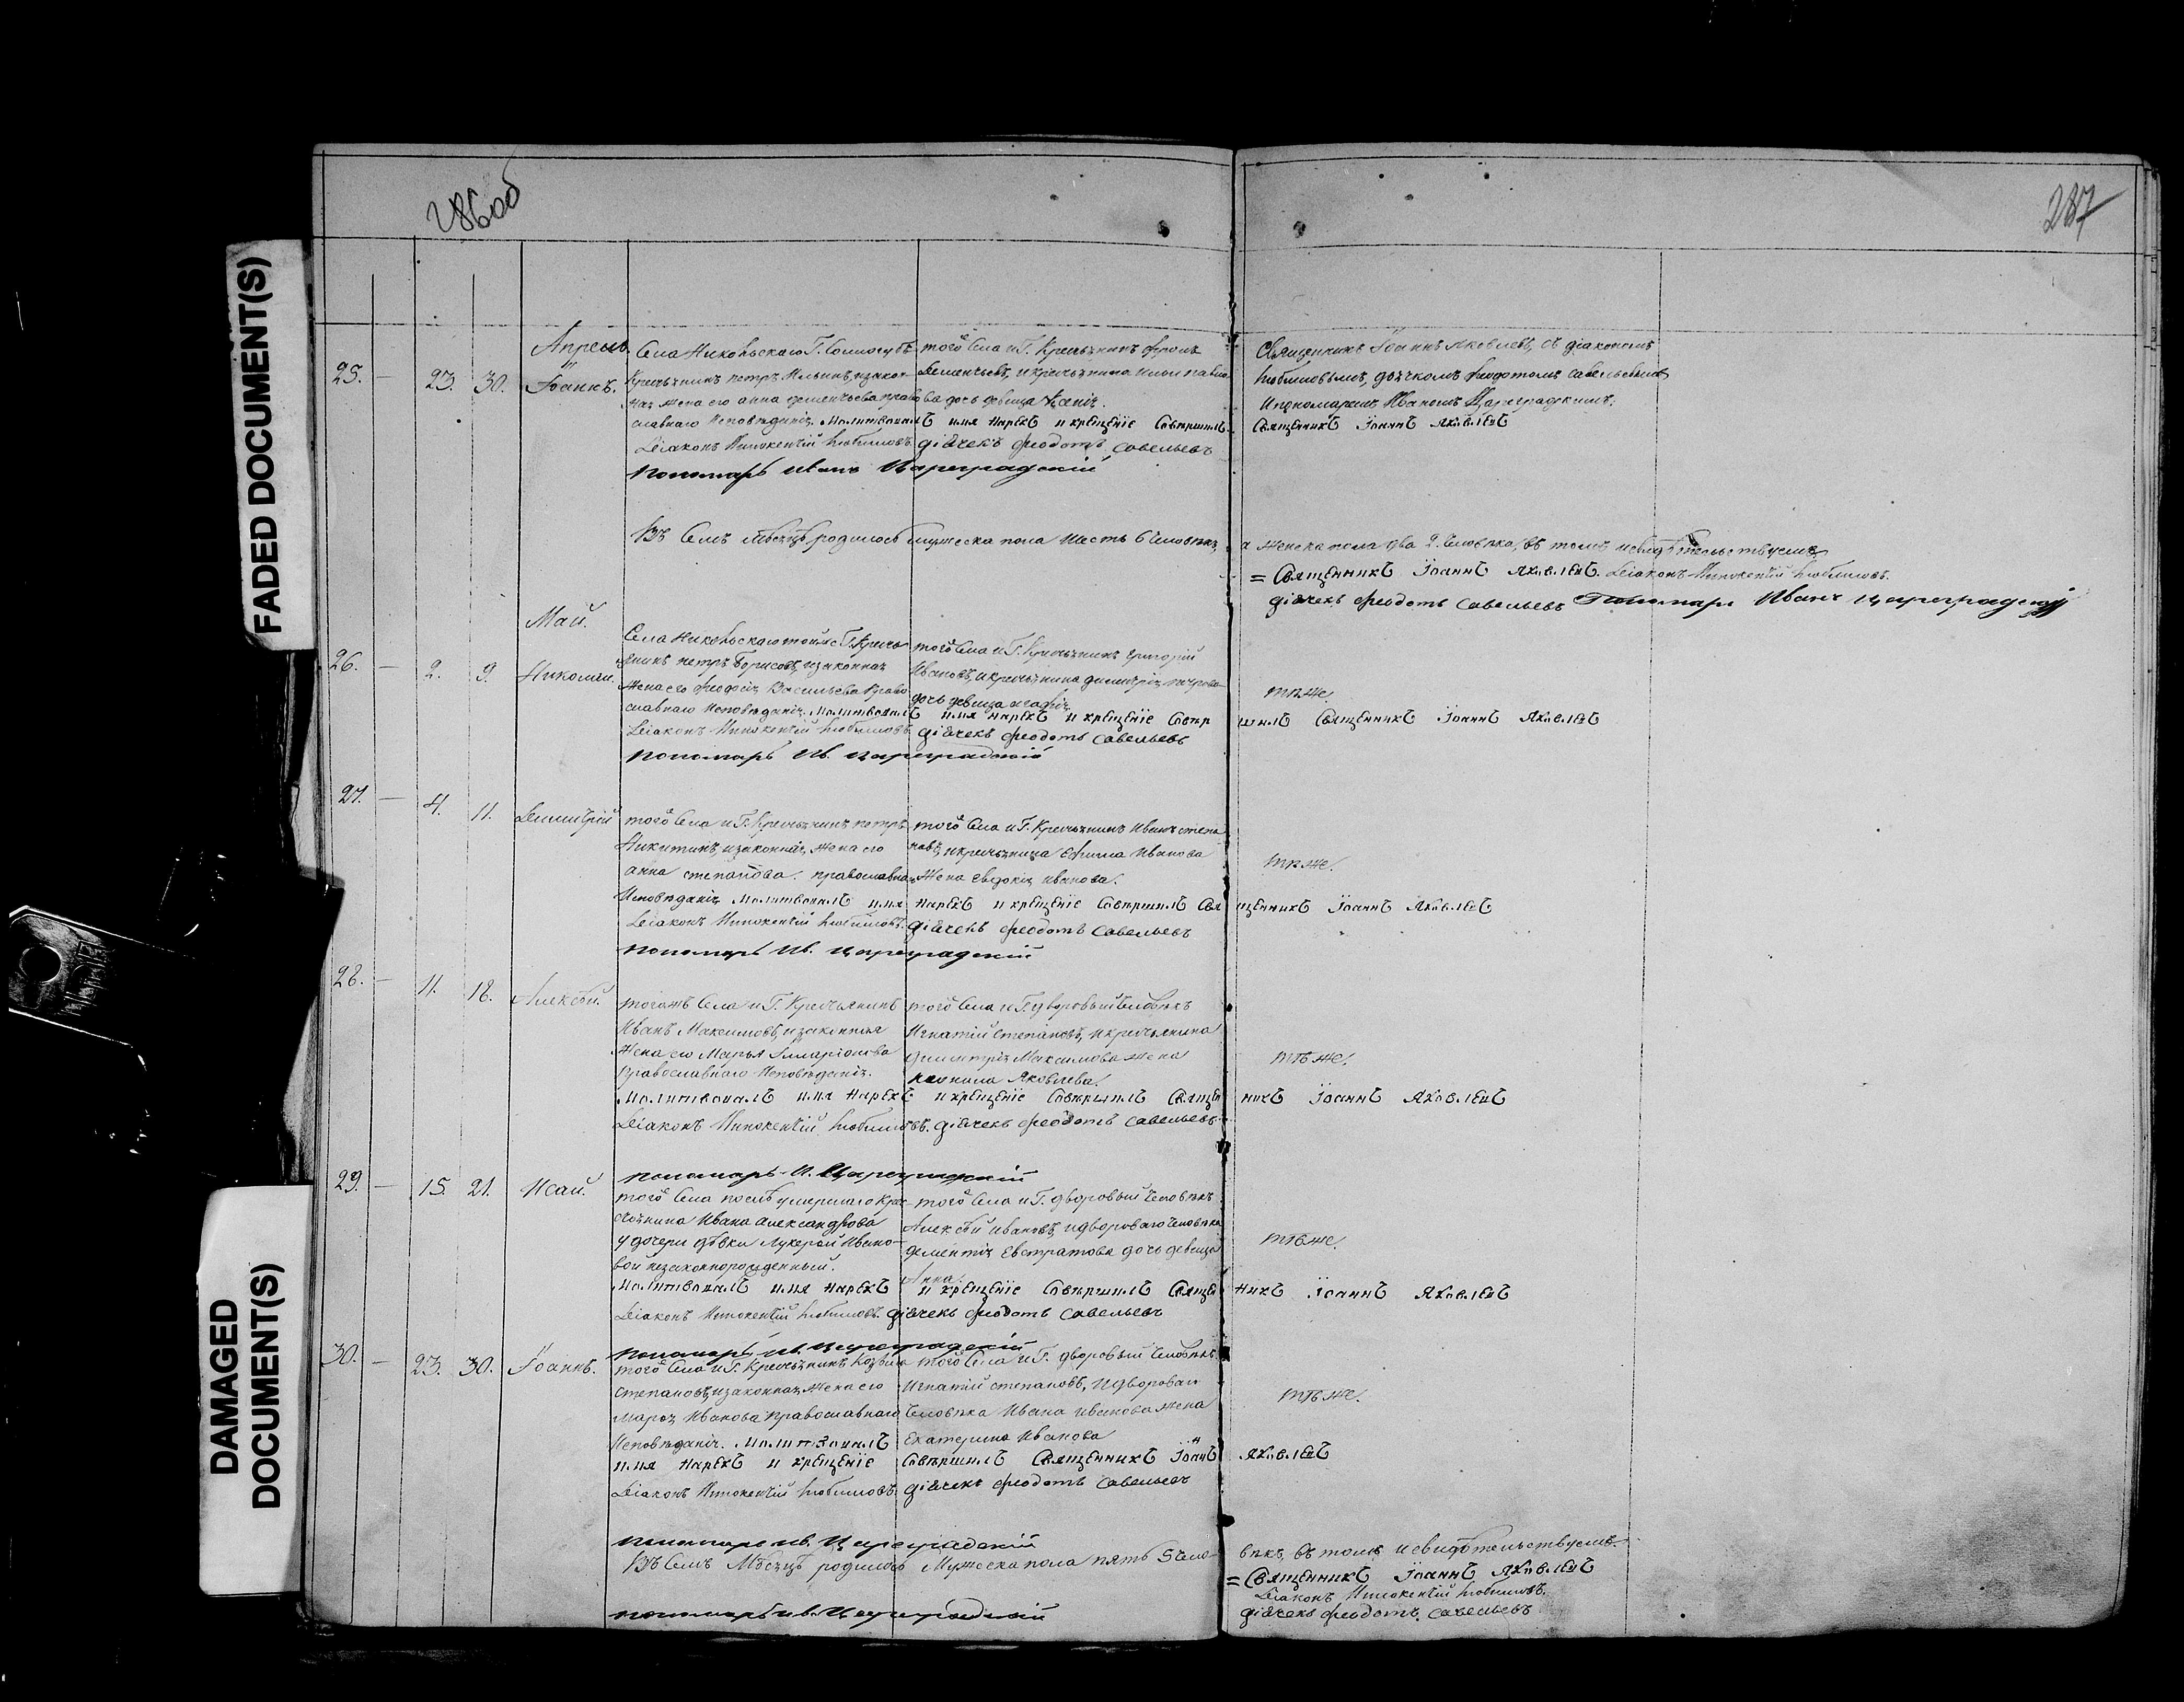 286об
287
FADED DOCUMENT(S)
DAMAGED
DOCUMENT(S)
Апрель.
25. — 23. 30. Іоаннъ.
Села Никольскаго Г.
Крестьянинъ петръ Ильинъ, и закон-
ная жена его анна дементьева право
славнаго Исповѣданія. Молитвовалъ имя нарекъ и крещеніе совершилъ
Діаконъ Иннокентій Любимовъ. діячекъ феодотъ савельевъ
пономарь Иванъ Цареградскій
того Села и Г. Крестьянинъ фролъ
дементьевъ, и крестьянина
ва дочь девица
Священникъ Іоаннъ Яковлевъ, съ діакономъ
Любимовымъ, дьячкомъ феодотомъ савельевымъ
и пономаремъ Иваномъ Цареградскимъ.
Священникъ Іоаннъ Яковлевъ
Въ Семъ мѣсяцѣ родилось мужеска пола шесть 6 человѣкъ,
а женска пола два 2. человѣка, въ томъ и свидѣтельствуемъ
= Священникъ Іоаннъ Яковлевъ. Діаконъ Иннокентій Любимовъ.
діячекъ феодотъ савельевъ Пономарь Иванъ цареградскій
Май.
26. — 2. 9. Николай.
Села Никольскаго тойже Г. Кресть
янинъ петръ Борисовъ, и законная
жена его феодосія Васильева Право
славнаго Исповѣданія. Молитвовалъ имя нарекъ и крещеніе совер
шилъ Священникъ Іоаннъ Яковлевъ
Діаконъ Иннокентій Любимовъ. діячекъ феодотъ савельевъ
пономарь Ив. цареградскій
того Села и Г. Крестьянинъ григорій
Ивановъ, и крестьянина димитрія петрова
дочь девица агафія
тѣже.
27. — 4. 11. Димитрій
того Села и Г. Крестьянинъ петръ
Никитинъ, и законная жена его
анна степанова. православнаго
Исповѣданія Молитвовалъ имя нарекъ и крещеніе совершилъ Свя
щенникъ Іоаннъ Яковлевъ
Діаконъ Иннокентій Любимовъ. діячекъ феодотъ савельевъ
пономарь Ив. цареградскій
того Села и Г. Крестьянинъ Иванъ степа
новъ, и крестьянина Ефима Иванова
жена евдокія иванова.
тѣже.
28. — 11. 18. Алексѣй.
тогожъ Села и Г. Крестьянинъ
Иванъ Максимовъ, и законная
жена его Марья Иларіонова
Православнаго Исповѣданія.
Молитвовалъ имя нарекъ и крещеніе совершилъ Священ
никъ Іоаннъ Яковлевъ
Діаконъ Иннокентій Любимовъ. діячекъ феодотъ савельевъ
пономарь И. Цареградскій
того Села и Г. дворовый человѣкъ
Игнатій степановъ, и крестьянина
димитрія Максимова жена
Яковлева.
тѣже.
29. — 15. 21. Исай.
того Села послѣ умершаго Кре
стьянина Ивана александрова
у дочери дѣвки Лукерьи Ивано-
вой незаконнорожденный.
Молитвовалъ имя нарекъ и крещеніе совершилъ Священ
никъ Іоаннъ Яковлевъ
Діаконъ Иннокентій Любимовъ. діячекъ феодотъ савельевъ
пономарь Ив. цареградскій
того Села и Г. дворовый человѣкъ
Алексѣй ивановъ, и двороваго человѣка
дементія Евстратова дочь девица
Анна.
тѣже.
30. — 23. 30. Іоаннъ.
того Села и Г. Крестьянинъ Козьма
степановъ, и законная жена его
Марѳа Иванова Православнаго
Исповѣданія. Молитвовалъ
имя нарекъ и крещеніе совершилъ Священникъ Іоаннъ Яковлевъ
Діаконъ Иннокентій Любимовъ. діячекъ феодотъ савельевъ
пономарь Ив. Цареградскій
того Села и Г. дворовый человѣкъ
Игнатій степановъ, и двороваго
человѣка Ивана иванова жена
Екатерина Иванова
тѣже.
Въ Семъ Мѣсяцѣ родилось Мужеска пола пять 5 чело-
вѣкъ, въ томъ и свидѣтельствуемъ
= Священникъ Іоаннъ Яковлевъ
Діаконъ Иннокентій Любимовъ.
діячекъ феодотъ савельевъ
пономарь Ив. Цареградскій